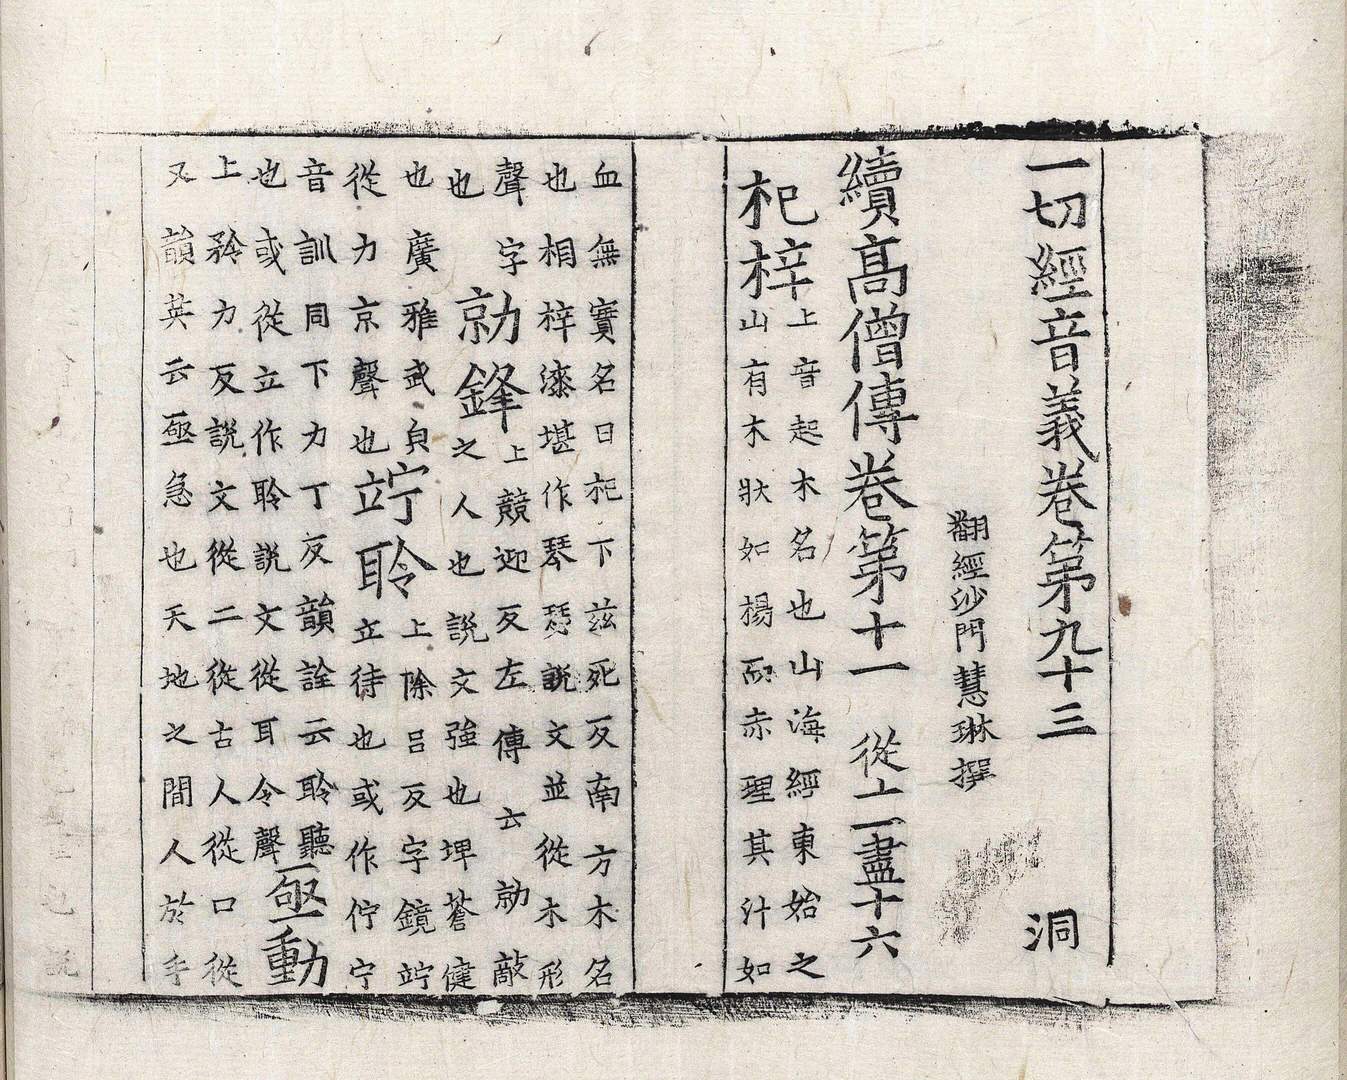 一切經音義卷第九十三 洞
翻經沙門慧琳撰
續高僧傳卷第十一 從十一盡十六
杞梓上音起木名也山海經東始之
山有木狀如楊而赤理其汁如
血無實名曰杞下茲死反南方木名
也相梓漆堪作琴瑟說文並從木形
聲字勍鋒上競迎反左傳云勍敵
之人也說文強也埤蒼健
也廣雅武皃竚聆上除呂反字鏡竚
立待也或作佇宁
從力京聲也
音訓同下力丁反韻詮云聆聽
也或從立作聆說文從耳令聲亟動
上矜力反說文從二從古人從口從
又韻英云亟急也天地之間人於手